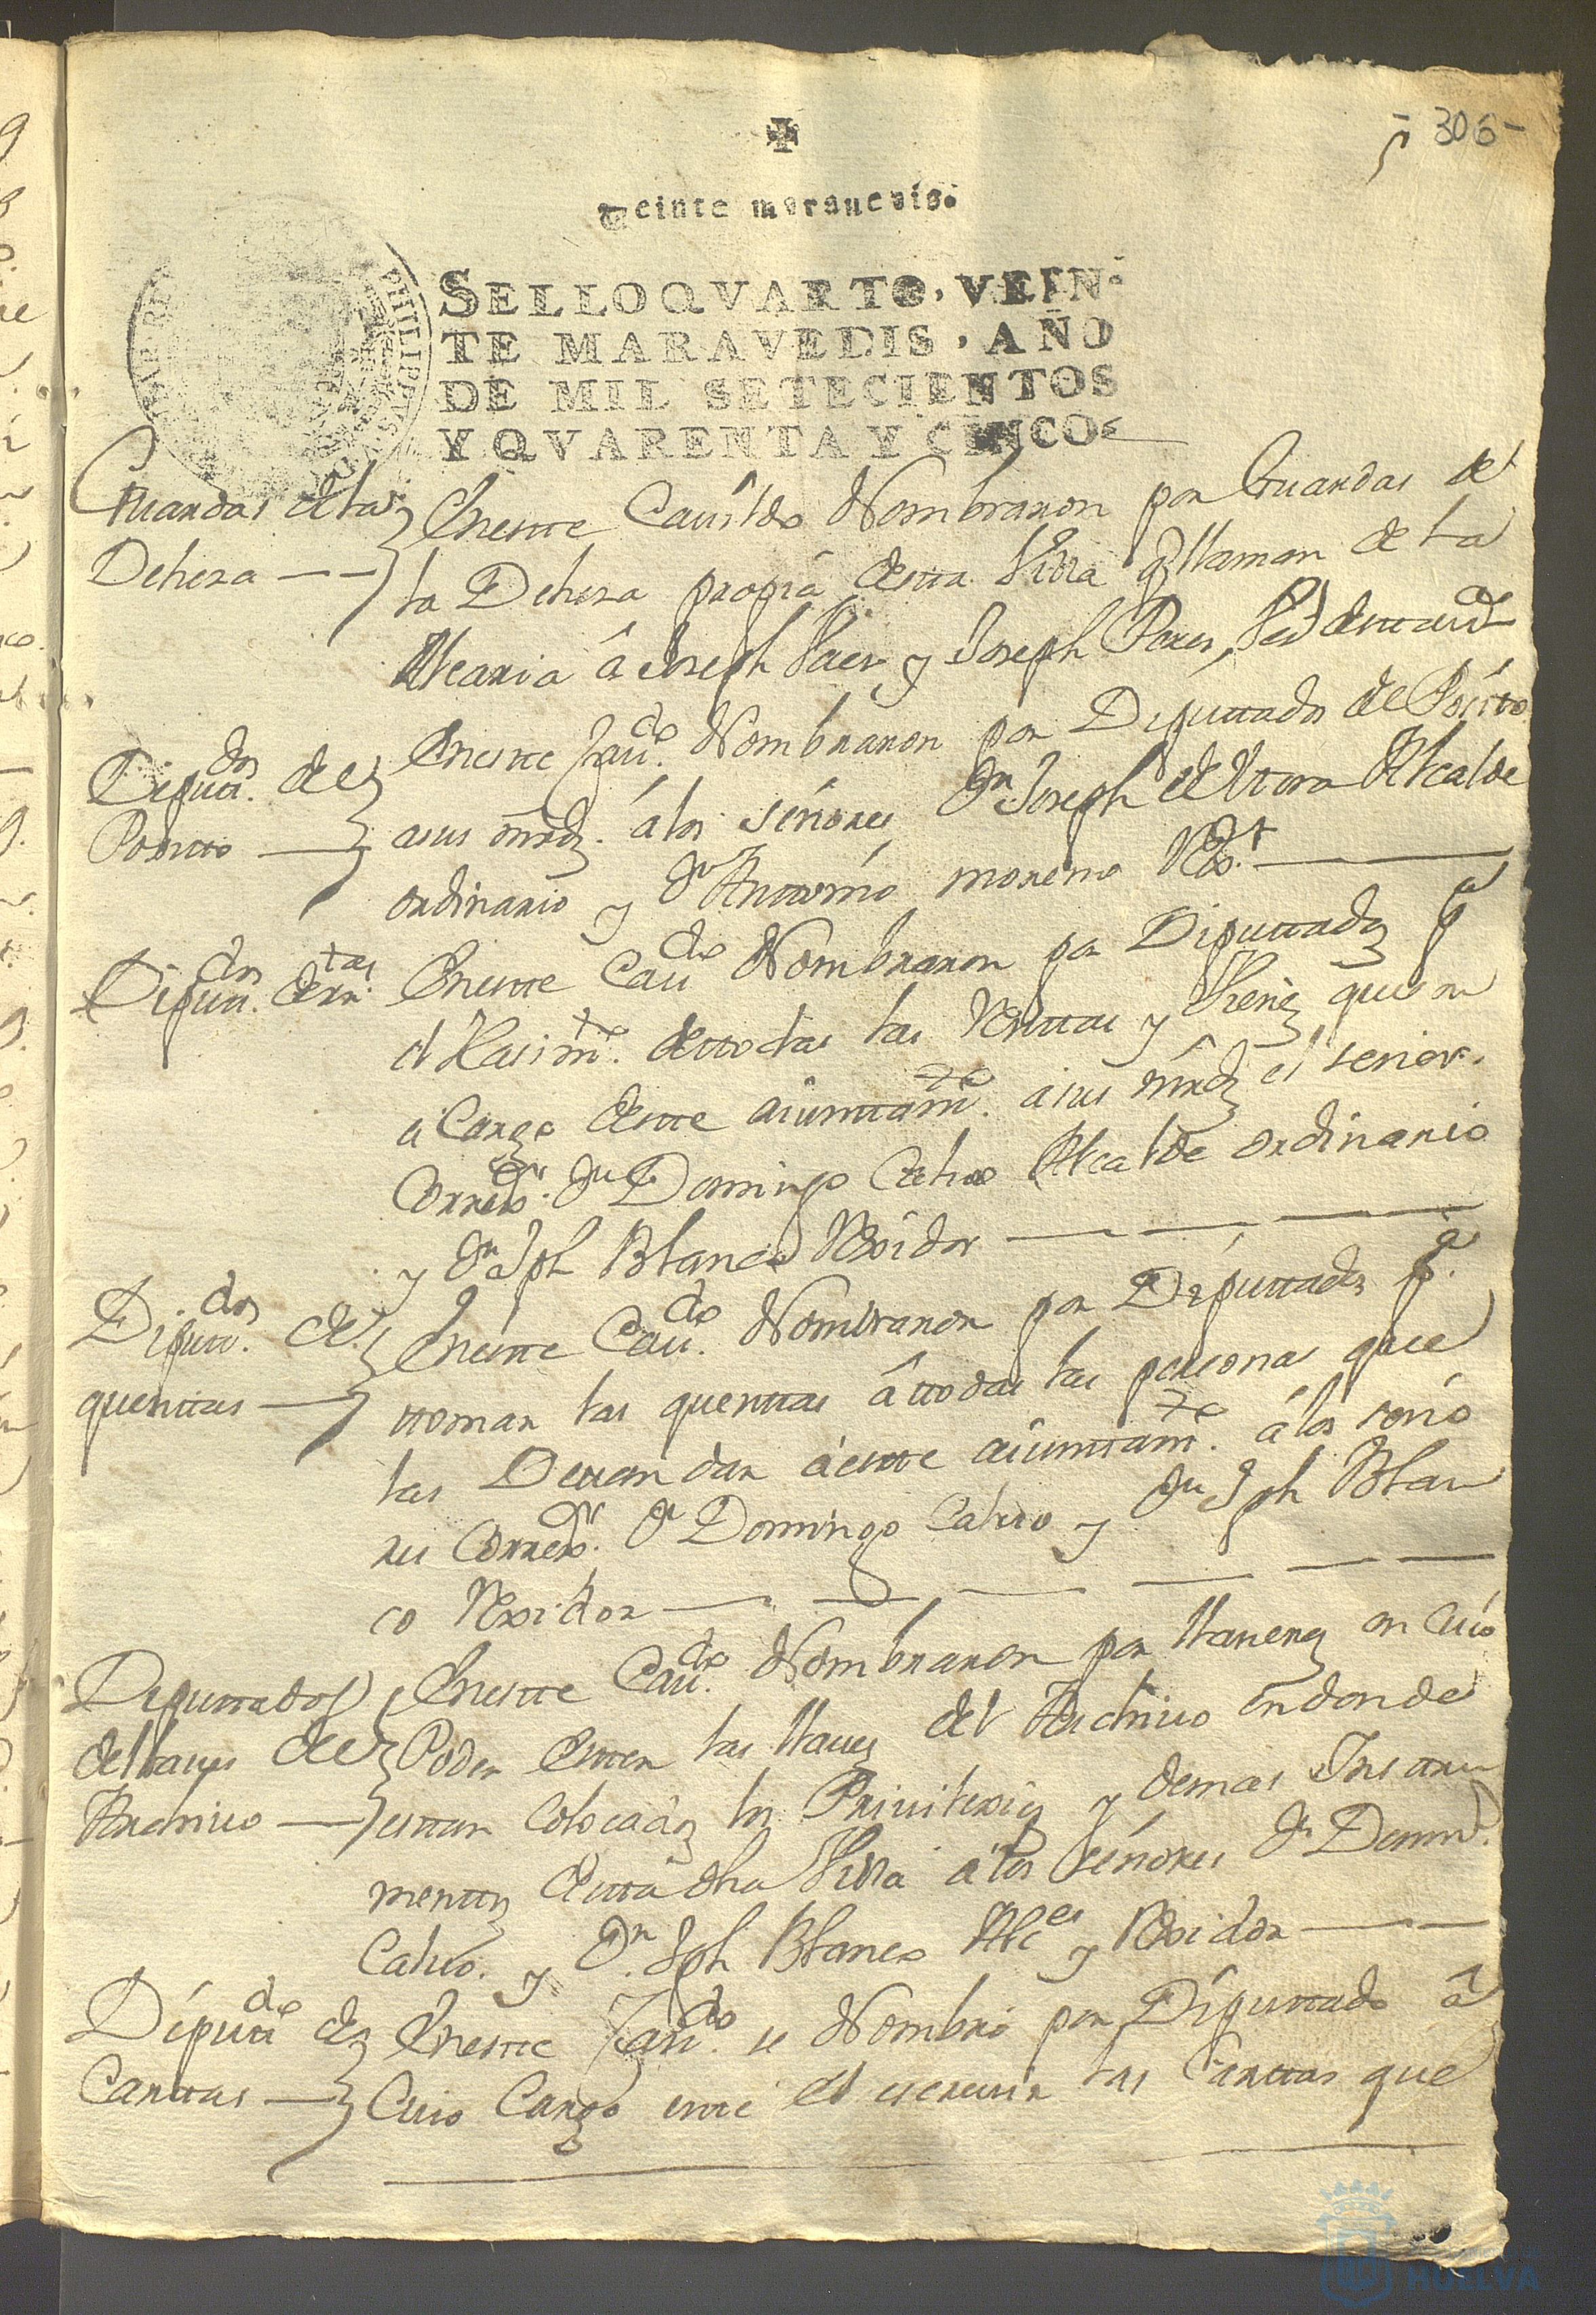 306
Veinte marauedis.
SELLO QVARTO, VEIN-
TE MARAVEDIS, AÑO
DE MIL SETECIENTOS
Y QVARENTA Y CINCO.
PHILIPPVS
Guardas de la
Dehesa
Eneste Cauildo Nombraron por Guardas de
la Dehesa propia desta Villa q llaman de la
Alcaria â Joseph Paez y Joseph Perez, Vezs desttaud
Diputtdos de
Positto
Eneste Caudo Nombraron por Diputtados de Positto
asus mrds. á los señores Dn Joseph de Mora Alcalde
ordinario y Dn Anttonio moreno Rdor
Diputtdos dertas
Eneste Caudo Nombraron por Diputtados pa
el Hasimto. dettodas las Renttas y Vienes que son
a Cargo deste aiunttamto. a sus mrds el señor
Corredor. Dn Domingo Caluo Alcalde ordinario
y Dn Jph Blanco Rexidor
Diputtdos de
quenttas
Eneste Caudo. Nombraron por Diputtados pa.
ttomar las quenttas â ttodas las personas que
las Deuan dar áeste aiunttamto. á los seño
res Corredor. Dn Domingo Caluo y Dn Jph Blan
co Rexidor
Diputtados
dellaues de el
Archiuo
Eneste Caudo. Nombraron por llaueros en Cuio
Poder Esten las llaues del Archiuo en donde
esttan Colocados los Priuilexios y demas Instru
menttos destta dha Villa a los señores Dn Domingo
Caluo. y Dn. Jph Blanco Alces y Rexidor
Diputtdo de
Carttas
Eneste Caudo. se Nombró por Diputtado â
Cuio Cargo esté el escreuir las Carttas que
HUELVA